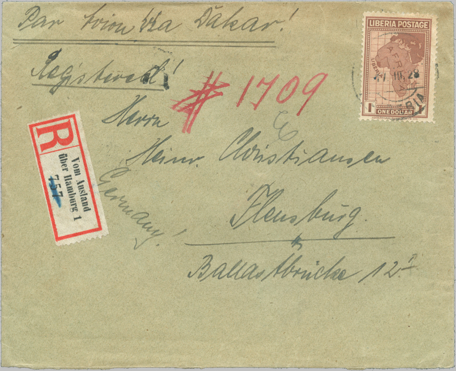 Par avion Via Dakar!
Registered!
# 1709
LIBERIA POSTAGE
1 ONE DOLLAR
R
Vom Ausland
über Hamburg 1
757
Herrn
Heinr. Christiansen
Germany!
Flensburg.
Ballastbrücke 12